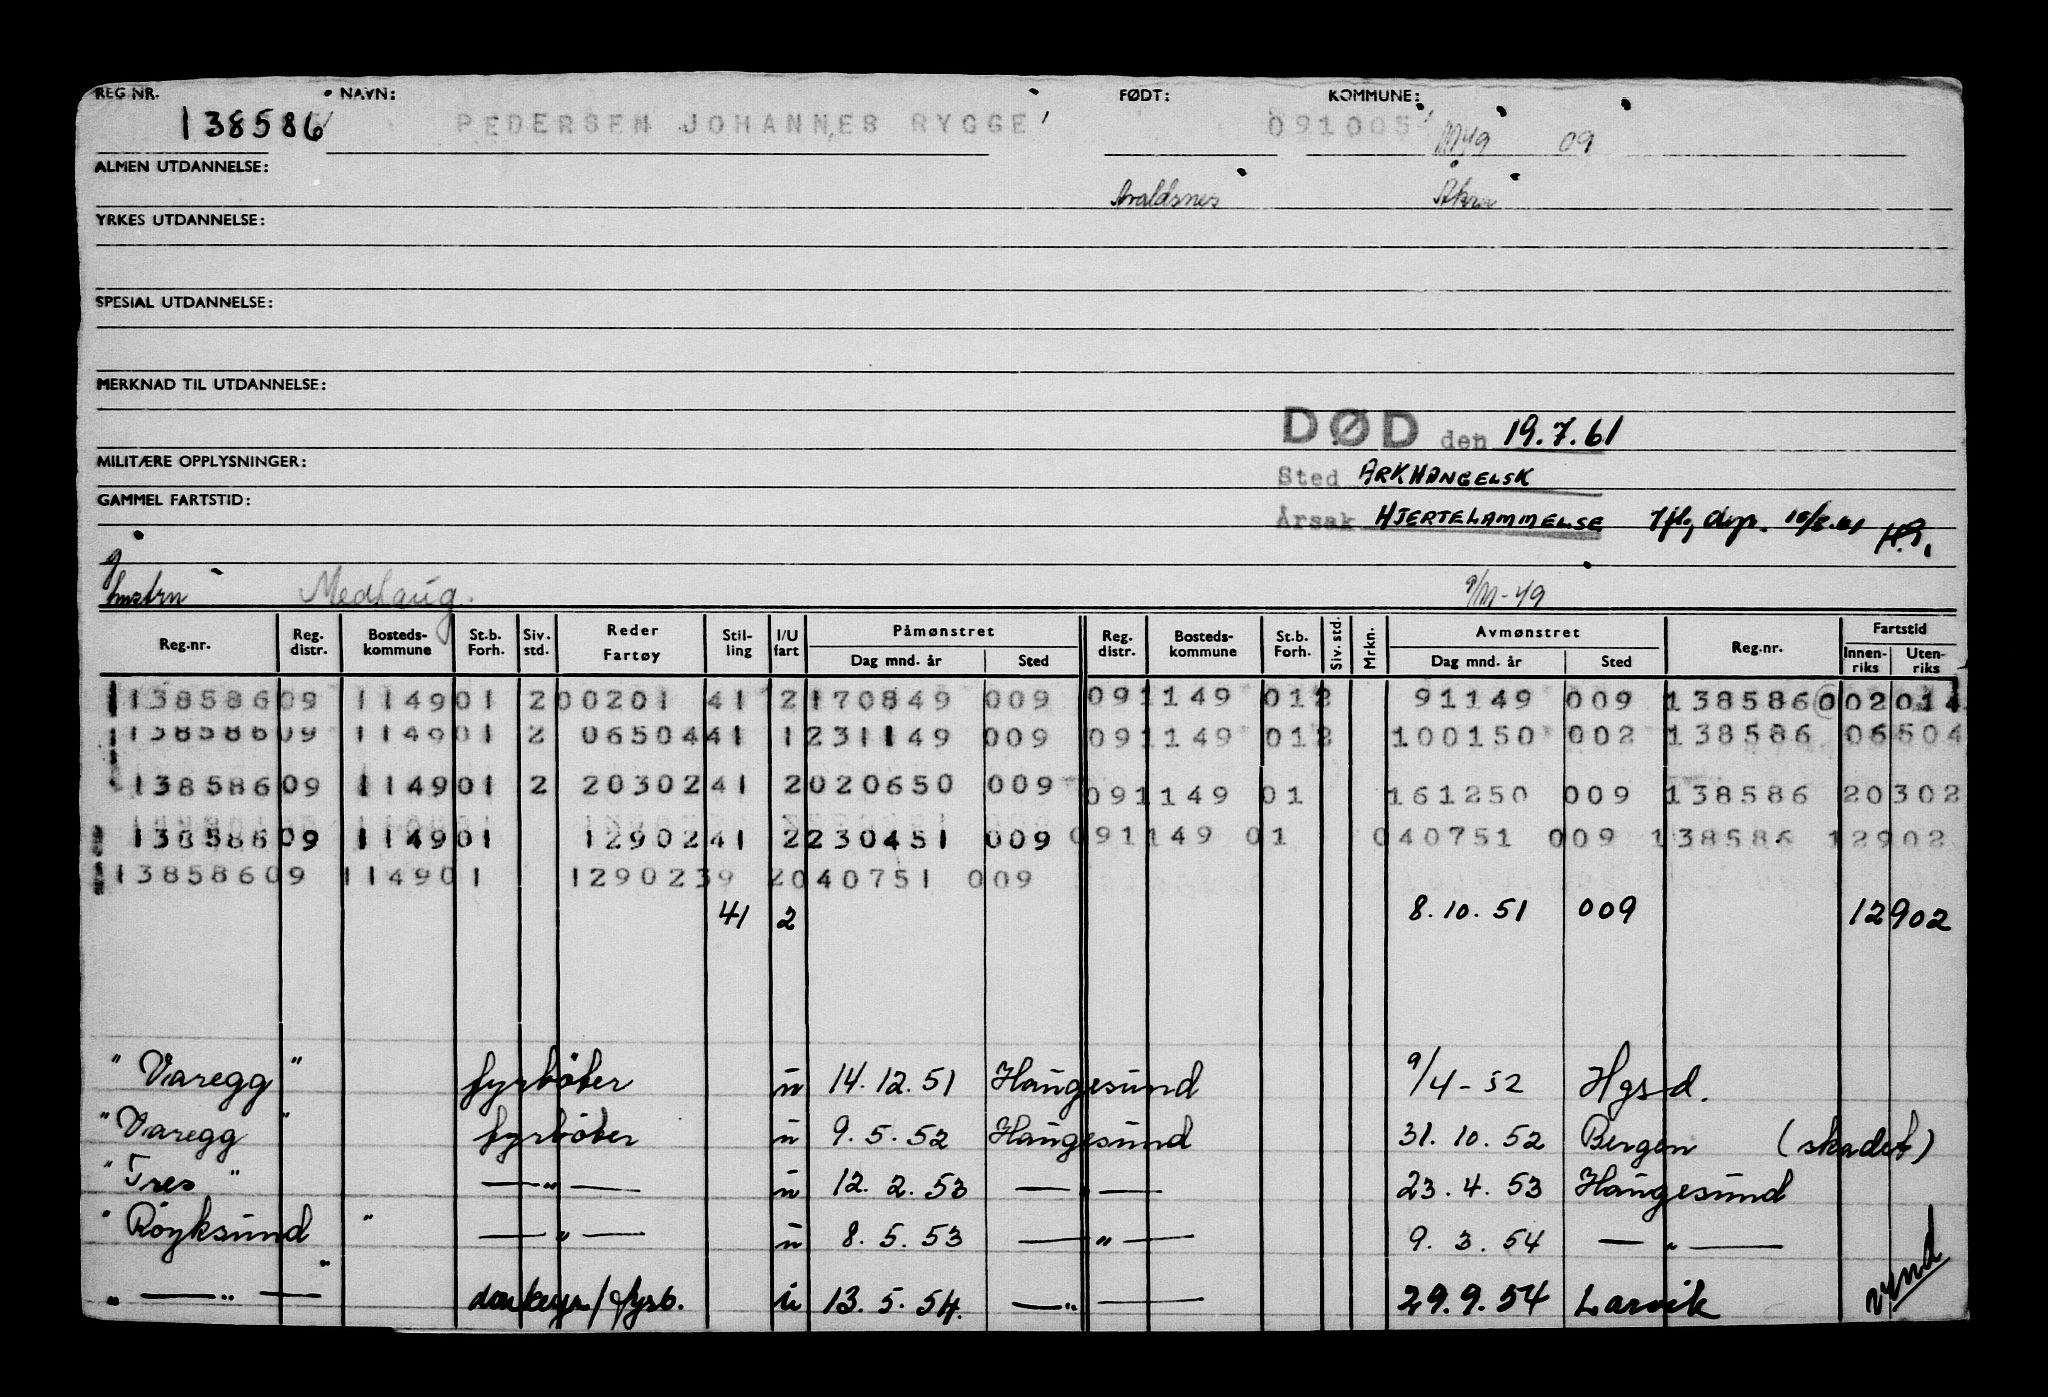 REG NR. NAVN: FØDT: KOMMUNE:
138586 PEDERSEN JOHANNES RYGGE 091005 M49 09
ALMEN UTDANNELSE:
Avaldsnes Åkra
YRKES UTDANNELSE:
SPESIAL UTDANNELSE:
MERKNAD TIL UTDANNELSE:
DØD den 19.7.61
MILITÆRE OPPLYSNINGER:
Sted ARKHANGELSK
GAMMEL FARTSTID:
Årsak HJERTELAMMELSE
g
hustru Medhaug. 9/M-49
Reg.nr. Reg. distr. Bosteds- kommune St.b. Forh. Siv. std. Reder Fartøy Stil- ling I/U fart Påmønstret Dag mnd. år Sted Reg. distr. Bosteds- kommune St.b. Forh. Siv. std. Mrkn. Avmønstret Dag mnd. år Sted Reg.nr. Fartstid Innen- riks Uten- riks
138586 09 1149 01 2 00201 41 2 170849 009 09 1149 01 2 91149 009 138586 0 02014
138586 09 1149 01 2 06504 41 1 231149 009 09 1149 01 2 100150 002 138586 06504
138586 09 1149 01 2 20302 41 2 020650 009 09 1149 01 161250 009 138586 20302
138586 09 1149 01 12902 41 2 230451 009 09 1149 01 040751 009 138586 12902
138586 09 1149 01 12902 39 2 040751 009
41 2 8.10.51 009 12902
"Varegg" fyrbøter u 14.12.51 Haugesund 9/4-52 Hgsd.
"Varegg" fyrbøter u 9.5.52 Haugesund 31.10.52 Bergen (skadet)
"Tres" —"— u 12.2.53 —"— 23.4.53 Haugesund
"Röyksund" —"— u 8.5.53 —"— 9.3.54 —"—
" —"— " donkeym/fyrb. u 13.5.54. —"— 29.9.54 Larvik
vend